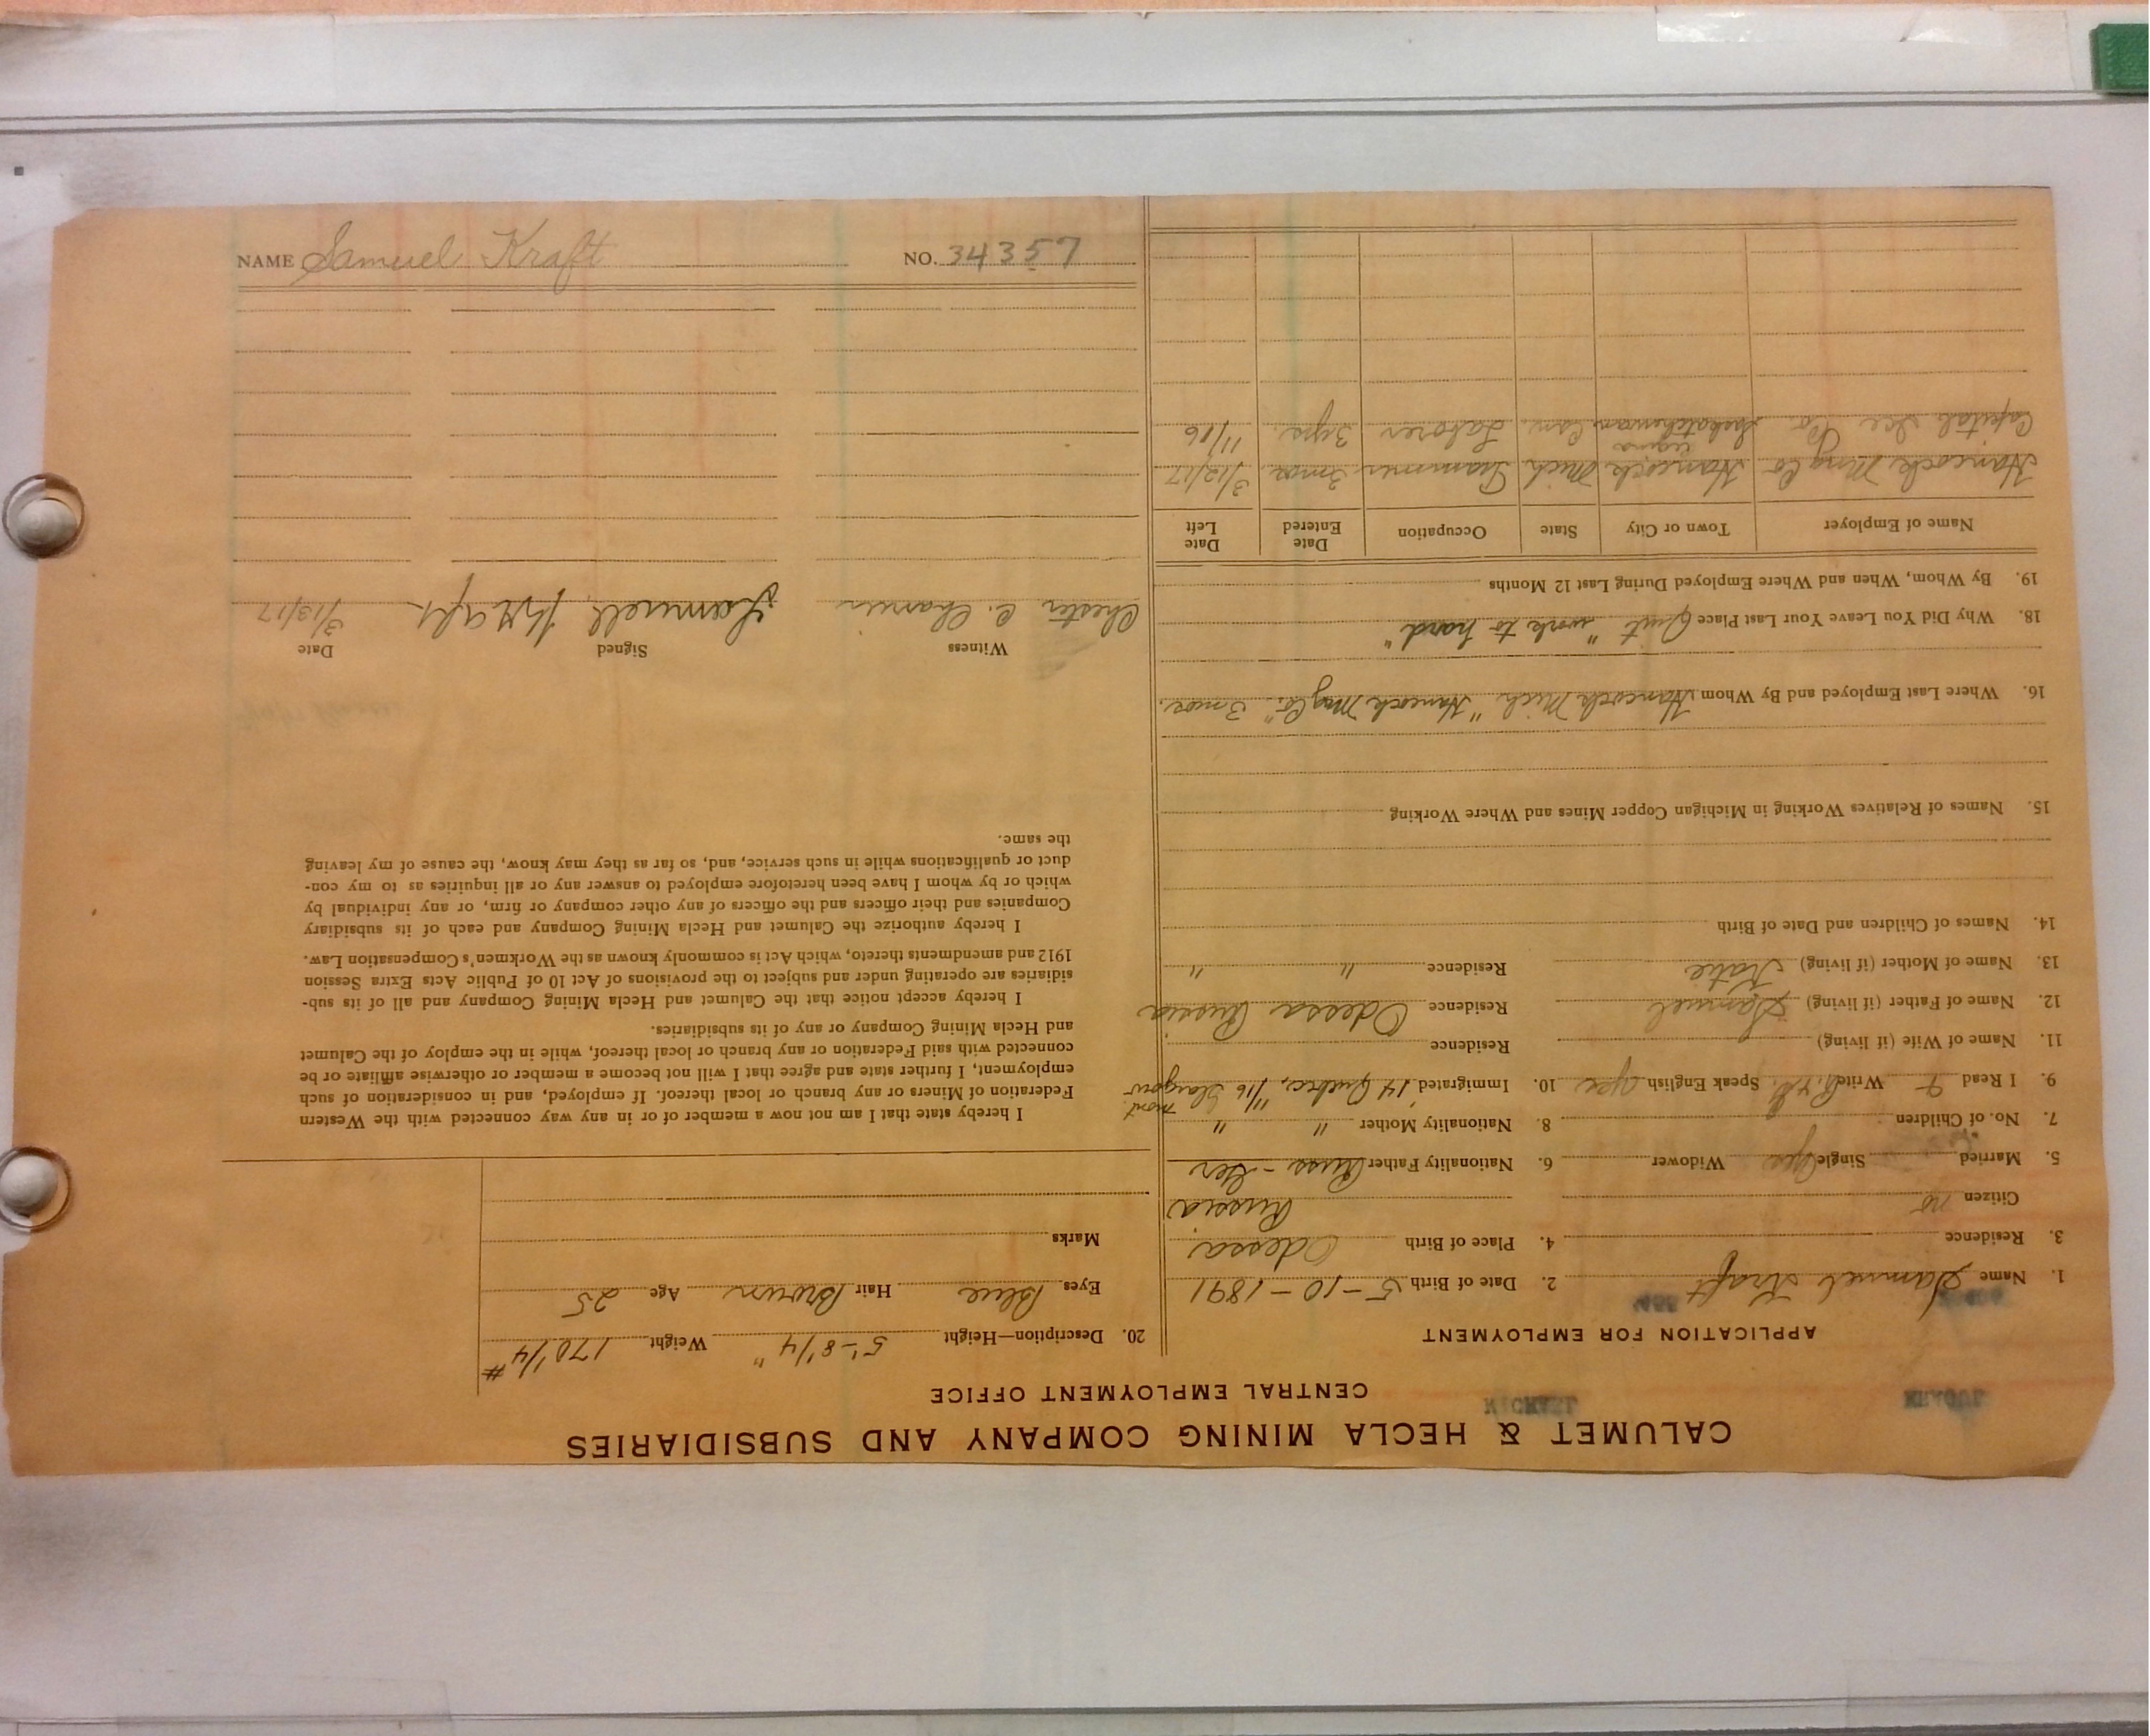 CALUMET & HECLA MINING COMPANY AND SUBSIDIARIES
CENTRAL EMPLOYMENT OFFICE
APPLICATION FOR EMPLOYMENT
1. Name Samuel Kraft 2. Date of Birth 5-10-1891
3. Residence 4. Place of Birth Odessa
Citizen no Russia
5. Married Single yes Widower 6. Nationality Father Russ-Ger
7. No. of Children 8. Nationality Mother " "
9. I Read Write Speak English yes 10. Immigrated '14 Quebec, 11/16
11. Name of Wife (if living) Residence
12. Name of Father (if living) Samuel Residence Odessa Russia
13. Name of Mother (if living) Katie Residence " "
14. Names of Children and Date of Birth
15. Names of Relatives Working in Michigan Copper Mines and Where Working
16. Where Last Employed and By Whom Hancock Mich. "Hancock Mng Co." 3 mos.
18. Why Did You Leave Your Last Place Quit "work to hard"
19. By Whom, When and Where Employed During Last 12 Months
Name of Employer Town or City State Occupation Date Entered Date Left
Hancock Mng Co Hancock Mich Trammer 3 mos 3/12/17
Capital Ice Co. Saskatchewan Can. Laborer 3 yrs. 11/16
20. Description—Height 5'-8 1/4" Weight 170 1/4 #
Eyes Blue Hair Brown Age 25
Marks
I hereby state that I am not now a member of or in any way connected with the Western
Federation of Miners or any branch or local thereof. If employed, and in consideration of such
employment, I further state and agree that I will not become a member or otherwise affiliate or be
connected with said Federation or any branch or local thereof, while in the employ of the Calumet
and Hecla Mining Company or any of its subsidiaries.
I hereby accept notice that the Calumet and Hecla Mining Company and all of its sub-
sidiaries are operating under and subject to the provisions of Act 10 of Public Acts Extra Session
1912 and amendments thereto, which Act is commonly known as the Workmen's Compensation Law.
I hereby authorize the Calumet and Hecla Mining Company and each of its subsidiary
Companies and their officers and the officers of any other company or firm, or any individual by
which or by whom I have been heretofore employed to answer any or all inquiries as to my con-
duct or qualifications while in such service, and, so far as they may know, the cause of my leaving
the same.
Witness Signed Date
Chester C. Samuel Kraft 3/13/17
NAME Samuel Kraft NO. 34357